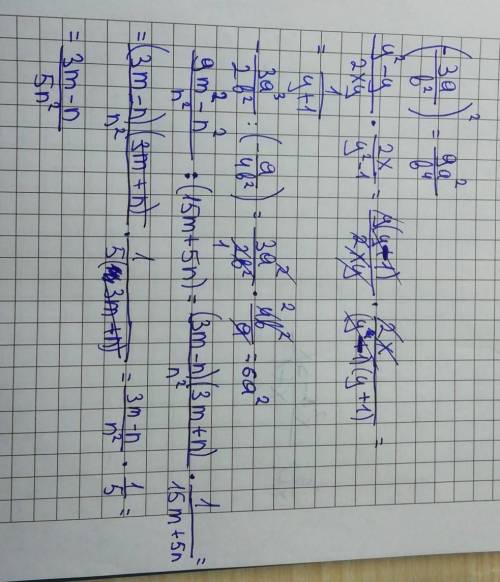 (-3a/b²)² = 9a²/b⁴
y²-y/2xy · 2x/y²-1 = y(y-1)/2xy · 2x/(y-1)(y+1) =
= 1/y+1
-3a³/2b² : (-a/4b²) = 3a³/2b² · 4b²/a = 6a²
9m²-n²/n² : (15m+5n) = (3m-n)(3m+n)/n² · 1/15m+5n =
= (3m-n)(3m+n)/n² · 1/5(3m+n) = 3m-n/n² · 1/5 =
= 3m-n/5n²